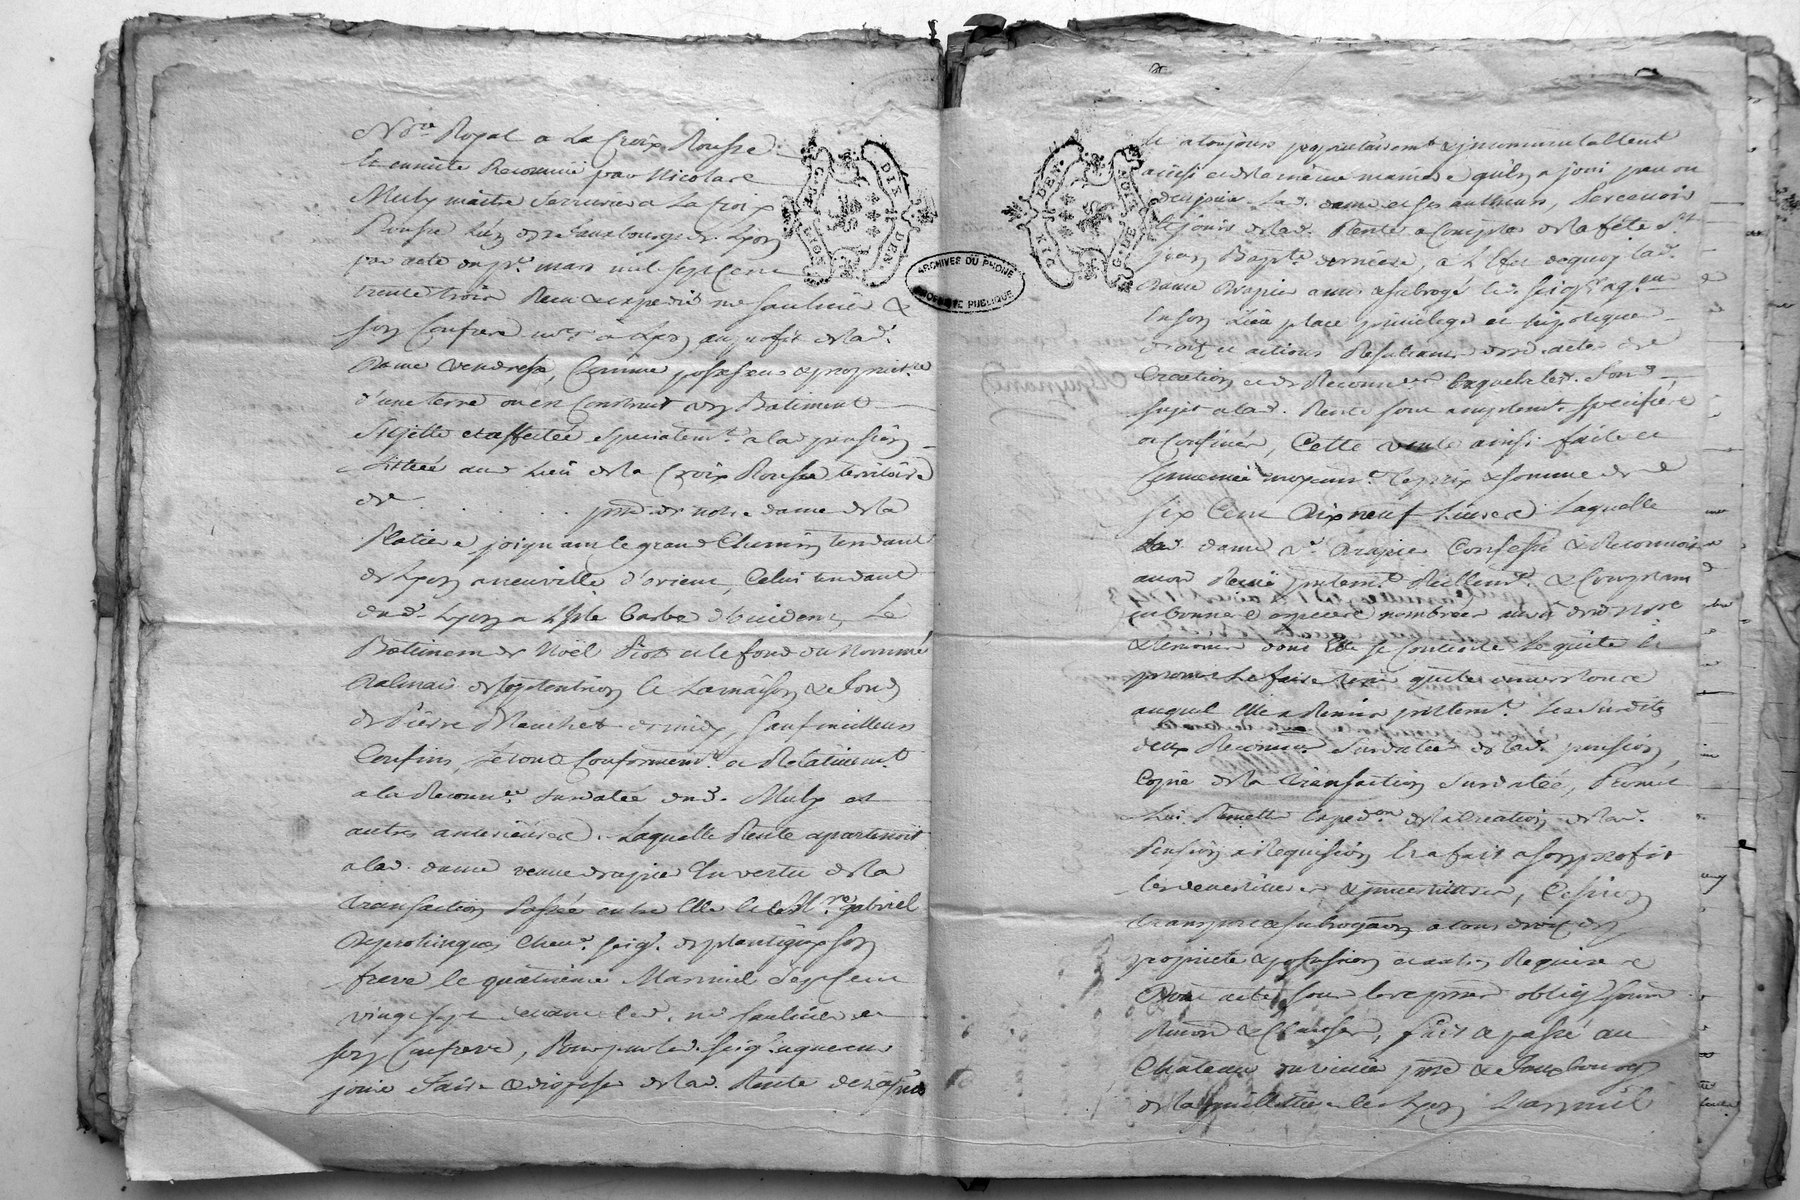 Nore Royal a La Croix Rousse
Et ensuite Reconnue par Nicolas
Muly maitre Serrurier a La Croix
Rousse Lès de faubourg de Lyon
par acte du pr. mars mil sept cent
trente trois Receu & expedié me Saulnier &
son Confrere nres a Lyon au profit de lad.
Dame venderesse, Comme possesseur & propriete
d'une terre ou est Construit un Batiment
Sujette et affectée specialemt. a la pension
Sittuée aud. Lieu de la Croix Rousse territoire
de . . . . . psse de notre dame de la
Platiere joignant le grand Chemin tendant
de Lyon a neuville d'orient, Celui tendant
dud. Lyon a L'Isle barbe d'occident, Le
Batiment de Noël et le fond du Nommé
de septentrion et La maison & fond
de Pierre de midy, Sauf meilleurs
Confins, Le tout Conformemt. et Relativemt.
a la Reconnce. Susdatée dud. Muly et
autres anterieures. Laquelle Rente apartenoit
a lad. dame veuve drapier En vertu de la
transaction Passée entre Elle et le Sr. mre gabriel
Deperohingues Chevr. seigr. de plantigny son
frere le quatrieme Mars mil Sept cent
vingt sept devant led. me Saulnier et
son Confrere, Pour par led. Seigr. aquereur
jouir faire & disposer de lad. Rente des a present
ARCHIVES DU RHONE
PROPRIETE PUBLIQUE
DIX DEN.
G. DE LYON
DIX DEN.
G. DE LYON
et a toujours proprietairemt. & incommutablement
ainsi et de la même maniere qu'en a joui peu ou
deu jouir Lad. dame et ses autheurs, Percevoir
et jouir de lad. Rente a Compter de la fête St.
jean Baptte derniere, a L'effet de quoy lad.
Dame Drapier a mis & subrogé led. seigr. aqeur
En son Lieu place privilege et hipoteque
droits et actions Resultans desd. actes de
Creation et de Reconnces Esquels led. fond
sujet a lad. Rente sont amplemt. Specifiés
et Confinés, Cette vente ainsi faite et
moyent. le prix & somme de
six Cent Dix neuf Livres Laquelle
Lad. dame ve. Drapier Confesse & Reconnoit
avoir Receu presentemt. Reellemt. & Comptant
en bonnes especes nombrées au vû dud. Nore
& temoins dont Elle se Contente L'en quitte et
promet Le faire tenir quitte envers tous
auquel Elle a Remis presentemt. Les susdits
deux Reconnces Susdatées de lad. pension
Copie de la transaction Susdatée, Promet
Lui Remettre Expedon de la Creation de lad.
Pension a Requisition Et a fait a son profit
les devestitures & investitures, Cession
transport & subrogation a tous droits de
propriete & possession et action Requises
Dont acte sous Les promesses oblig. soum
Renon & Clauses, fait & passé au
Chateau psse & faubourg
de la guillottiere lès Lyon L'an mil